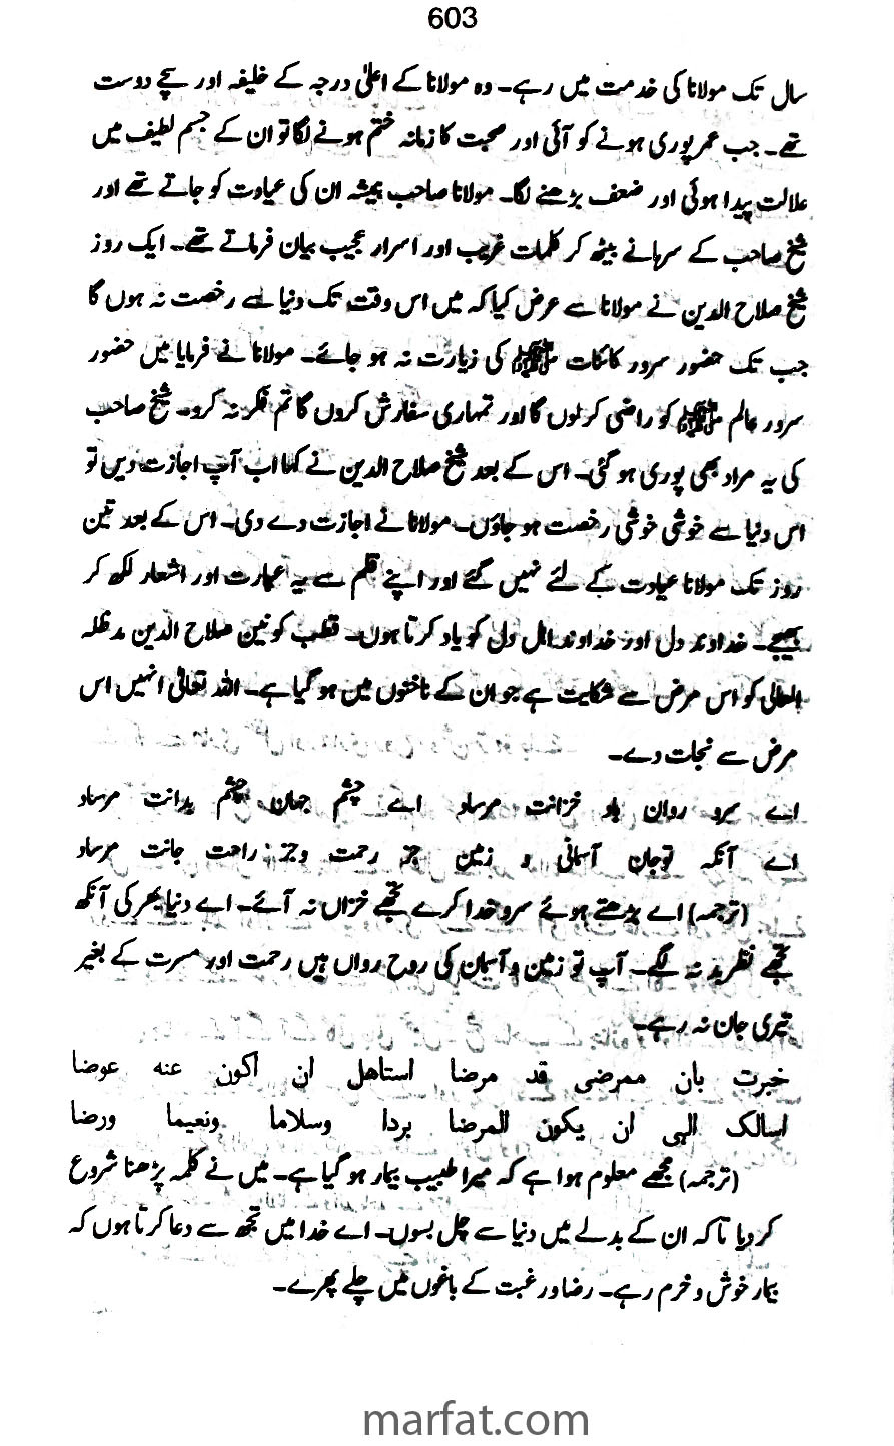 603
سال تک مولانا کی خدمت میں رہے۔ وہ مولانا کے اعلیٰ درجہ کے خلیفہ اور سچے دوست
تھے۔ جب عمر پوری ہونے کو آئی اور صحبت کا زمانہ ختم ہونے لگا تو ان کے جسم لطیف میں
علالت پیدا ہوئی اور ضعف بڑھنے لگا۔ مولانا صاحب ہمیشہ ان کی عیادت کو جاتے تھے اور
شیخ صاحب کے سرہانے بیٹھ کر کلمات غریب اور اسرار عجیب بیان فرماتے تھے۔ ایک روز
شیخ صلاح الدین نے مولانا سے عرض کیا کہ میں اس وقت تک دنیا سے رخصت نہ ہوں گا
جب تک حضور سرور کائنات ﷺ کی زیارت نہ ہو جائے۔ مولانا نے فرمایا میں حضور
سرور عالم ﷺ کو راضی کر لوں گا اور تمہاری سفارش کروں گا تم فکر نہ کرو۔ شیخ صاحب
کی یہ مراد بھی پوری ہو گئی۔ اس کے بعد شیخ صلاح الدین نے کہا اب آپ اجازت دیں تو
اس دنیا سے خوشی خوشی رخصت ہو جاؤں۔ مولانا نے اجازت دے دی۔ اس کے بعد تین
روز تک مولانا عیادت کے لئے نہیں گئے اور اپنے قلم سے یہ عبارت اور اشعار لکھ کر
بھیجے۔ خداوند دل اور خداوند اہل دل کو یاد کرتا ہوں۔ قطب کونین صلاح الدین مدظلہ
العالی کو اس مرض سے شکایت ہے جو ان کے ناخنوں میں ہو گیا ہے۔ اللہ تعالیٰ انہیں اس
مرض سے نجات دے۔
اے سرو روان باد خزانت مرساد اے چشم جہان چشم بدانت مرساد
اے آنکہ توجان آسمانی و زمین جز رحمت وجز راحت جانت مرساد
(ترجمہ) اے بڑھتے ہوئے سرو خدا کرے تجھے خزاں نہ آئے۔ اے دنیا بھر کی آنکھ
تجھے نظر بد نہ لگے۔ آپ تو زمین و آسمان کی روح رواں ہیں رحمت اور مسرت کے بغیر
تیری جان نہ رہے۔
خبرت بان ممرضی قد مرضا استاهل ان اکون عنه عوضا
اسالک الهی ان یکون للمرضا بردا وسلاما ونعیما ورضا
(ترجمہ) مجھے معلوم ہوا ہے کہ میرا طبیب بیمار ہو گیا ہے۔ میں نے کلمہ پڑھنا شروع
کر دیا تاکہ ان کے بدلے میں دنیا سے چل بسوں۔ اے خدا میں تجھ سے دعا کرتا ہوں کہ
بیمار خوش و خرم رہے۔ رضا ورغبت کے باغوں میں چلے پھرے۔
marfat.com